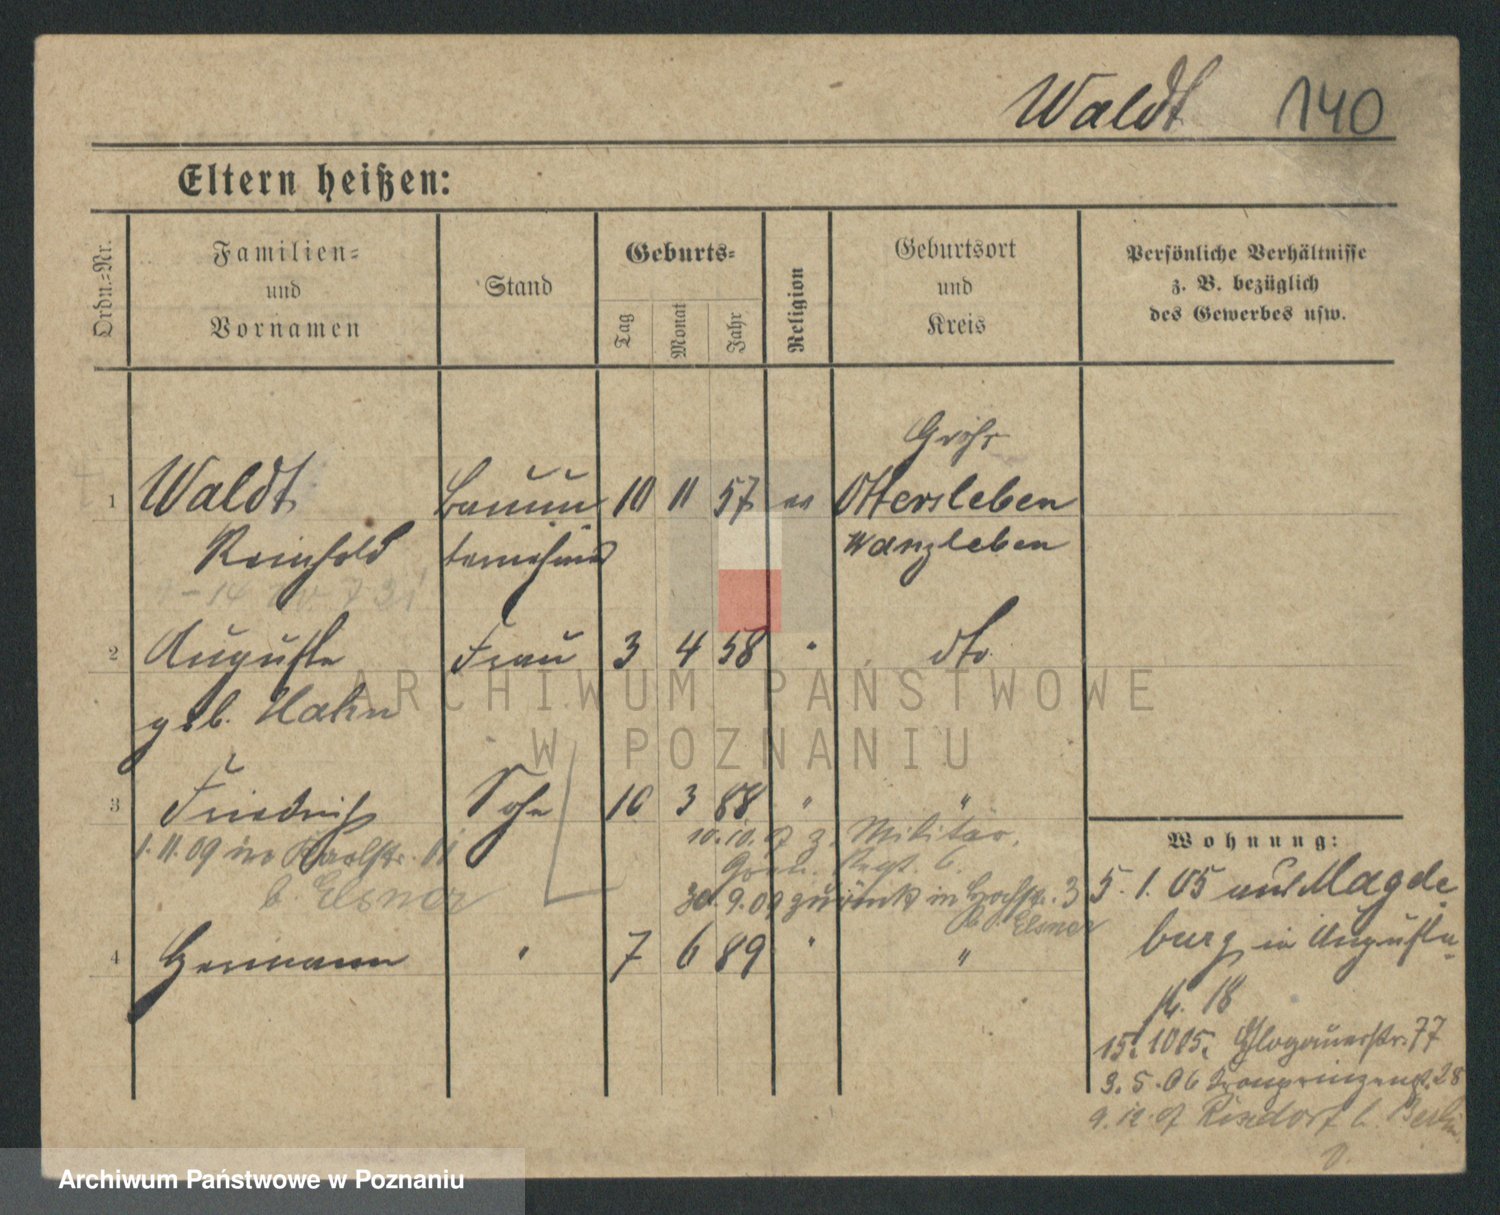 Waldt 140
Eltern heißen:
Ordn.-Nr.
Familien-
und
Vornamen
Stand
Geburts-
Tag
Monat
Jahr
Religion
Geburtsort
und
Kreis
Persönliche Verhältnisse
z. B. bezüglich
des Gewerbes usw.
Groß
1 Waldt Bauun 10 11 57 ev Ottersleben
Reinhold ternehmer Wanzleben
2 Auguste Frau 3 4 58 " dto.
geb. Hahn
3 Friedrich Sohn 10 3 88 " "
1.11.09 11
b Elsner
10.10.07 z. Militär.
Gren. Regt. 6.
30.9.09 zurück in 3
b. Elsner
4 Hermann " 7 6 89 " "
Wohnung:
5.1.05 aus Magde
burg in Augusta-
str. 18
15.10 05. Glogauerstr. 77
3.5.06 Kronprinzenst. 28
9.12.07 Rixdorf b. Berlin.
ARCHIWUM PAŃSTWOWE
W POZNANIU
Archiwum Państwowe w Poznaniu